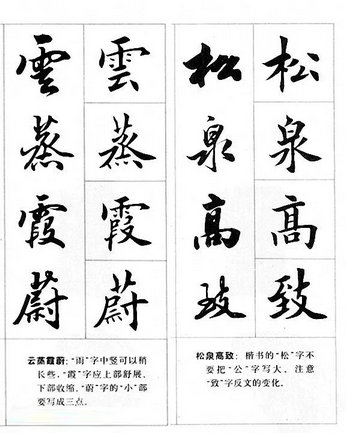 松泉髙致
松泉髙致
松泉高致：楷书的“松”字不
要把“公”字写大，注意
“致”字反文的变化。
雲蒸霞蔚
雲蒸霞蔚
云蒸霞蔚：“雨”字中竖可以稍
长些，“霞”字应上部舒展，
下部收缩，“蔚”字的“小”部
要写成三点。